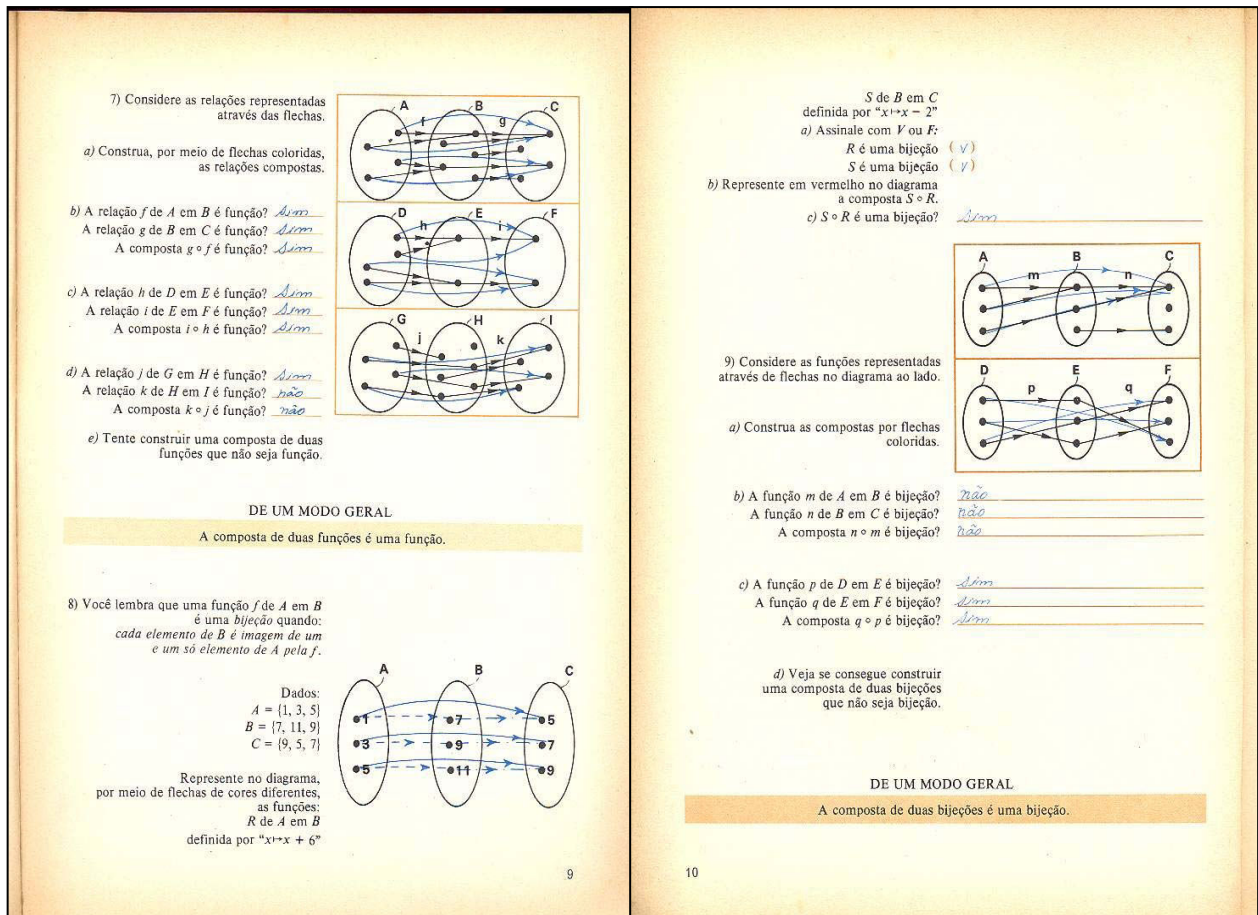 7) Considere as relações representadas
através das flechas.
a) Construa, por meio de flechas coloridas,
as relações compostas.
b) A relação f de A em B é função? Sim
A relação g de B em C é função? Sim
A composta g ∘ f é função? Sim
c) A relação h de D em E é função? Sim
A relação i de E em F é função? Sim
A composta i ∘ h é função? Sim
d) A relação j de G em H é função? Sim
A relação k de H em I é função? não
A composta k ∘ j é função? não
e) Tente construir uma composta de duas
funções que não seja função.
A B C
f g
D E F
h i
G H I
j k
DE UM MODO GERAL
A composta de duas funções é uma função.
8) Você lembra que uma função f de A em B
é uma bijeção quando:
cada elemento de B é imagem de um
e um só elemento de A pela f.
Dados:
A = {1, 3, 5}
B = {7, 11, 9}
C = {9, 5, 7}
Represente no diagrama,
por meio de flechas de cores diferentes,
as funções:
R de A em B
definida por “x↦x + 6”
A B C
1 7 5
3 9 7
5 11 9
9
S de B em C
definida por “x↦x − 2”
a) Assinale com V ou F:
R é uma bijeção (V)
S é uma bijeção (V)
b) Represente em vermelho no diagrama
a composta S ∘ R.
c) S ∘ R é uma bijeção? Sim
A B C
m n
D E F
p q
9) Considere as funções representadas
através de flechas no diagrama ao lado.
a) Construa as compostas por flechas
coloridas.
b) A função m de A em B é bijeção? não
A função n de B em C é bijeção? não
A composta n ∘ m é bijeção? não
c) A função p de D em E é bijeção? Sim
A função q de E em F é bijeção? Sim
A composta q ∘ p é bijeção? Sim
d) Veja se consegue construir
uma composta de duas bijeções
que não seja bijeção.
DE UM MODO GERAL
A composta de duas bijeções é uma bijeção.
10